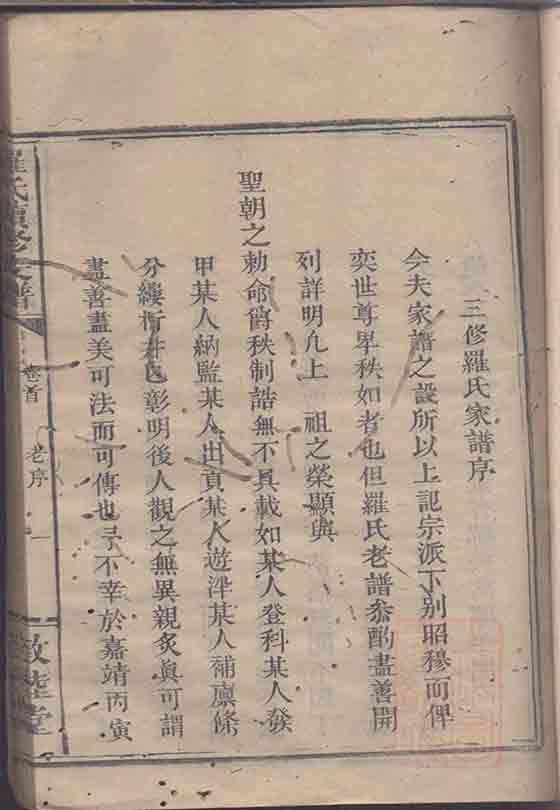 三修羅氏家譜序
今夫家譜之設所以上記宗派下別昭穆而俾
奕世尊卑秩如者也但羅氏老譜叅酌盡善開
列詳明凡上　祖之榮顯與
聖朝之勅命爵秩制誥無不具載如某人登科某人發
甲某人納監某人出貢某人遊泮某人補廩條
分縷析井邑彰明後人觀之無異親炙眞可謂
盡善盡美可法而可傳也予不幸於嘉靖丙寅
羅氏續修支譜
卷首
老序
一
敦睦堂